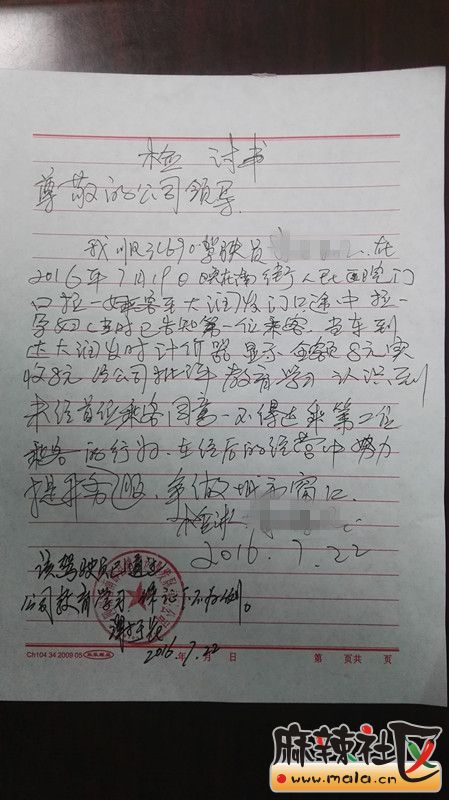 检讨书
尊敬的公司领导
我川R3L690驾驶员 在
2016年7月19日晚在南街人民医院门
口拉一女乘客至大润发门口途中拉一
孕妇(当时已告知第一位乘客.当车到
达大润发时计价器显示金额8元实
收8元 经公司批评教育学习 认识到
未经首位乘客同意.不得达乘第二位
乘客 的行为.在经后的经营中努力
提升客服.争做城市窗口.
检讨人
2016.7.22
该驾驶员已通过
公司教育学习 保证下不为例。
2016.7.22
年 月 日
第 页共 页
Ch104 34 2009·05
麻辣社区
www.mala.cn